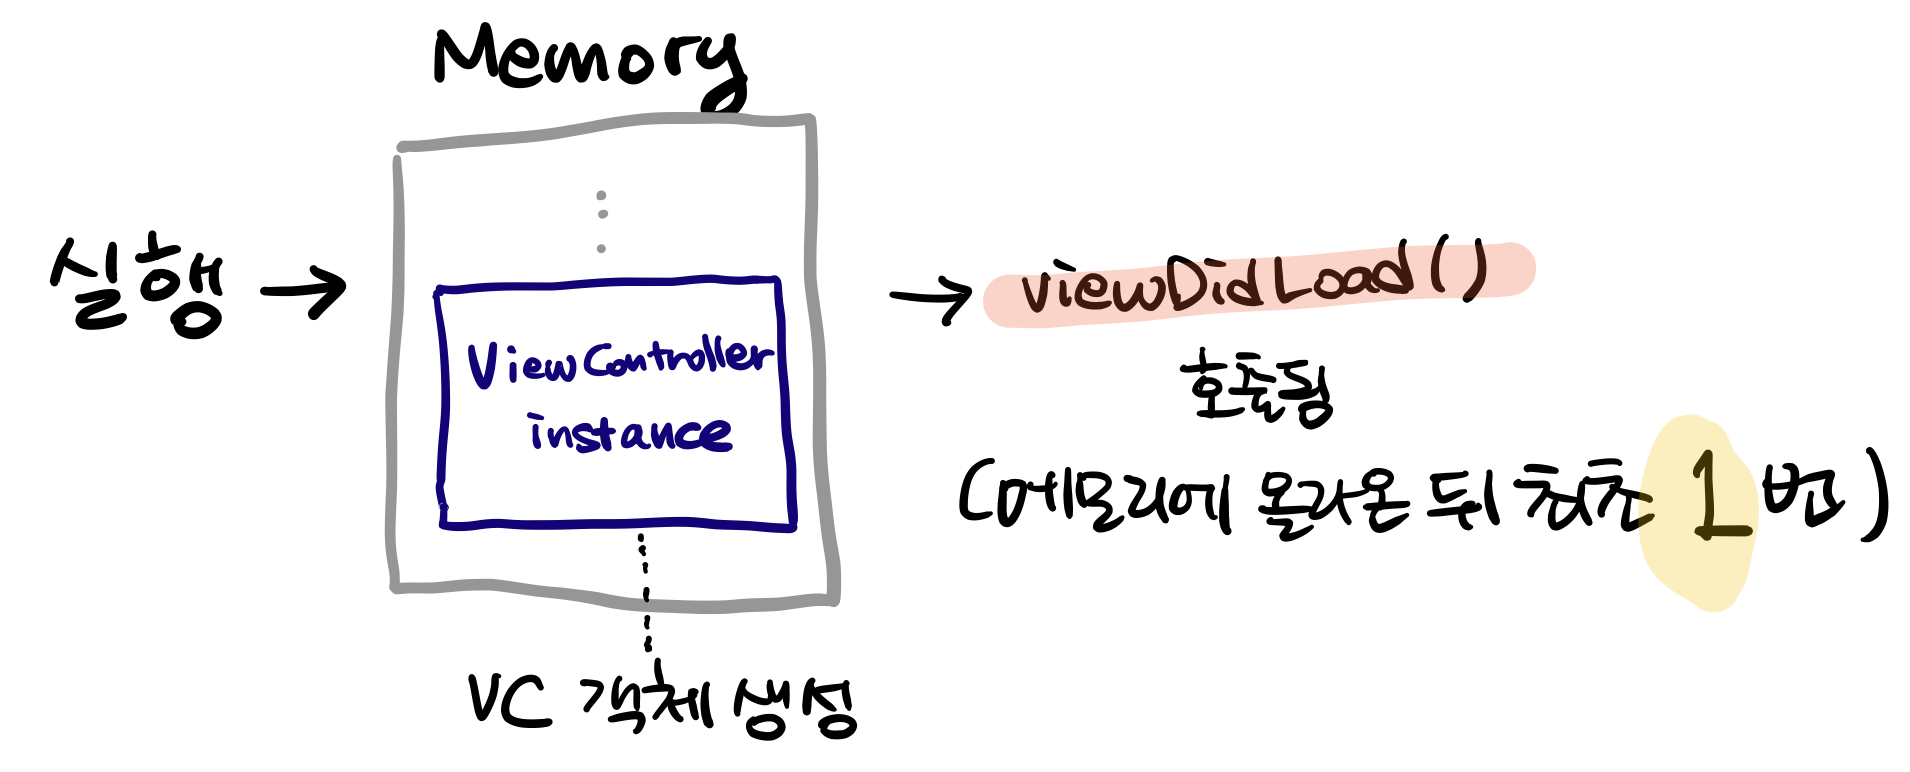 Memory
실행
ViewController
instance
VC 객체 생성
viewDidLoad()
호출됨
(메모리에 올라온 뒤 최초 1번)